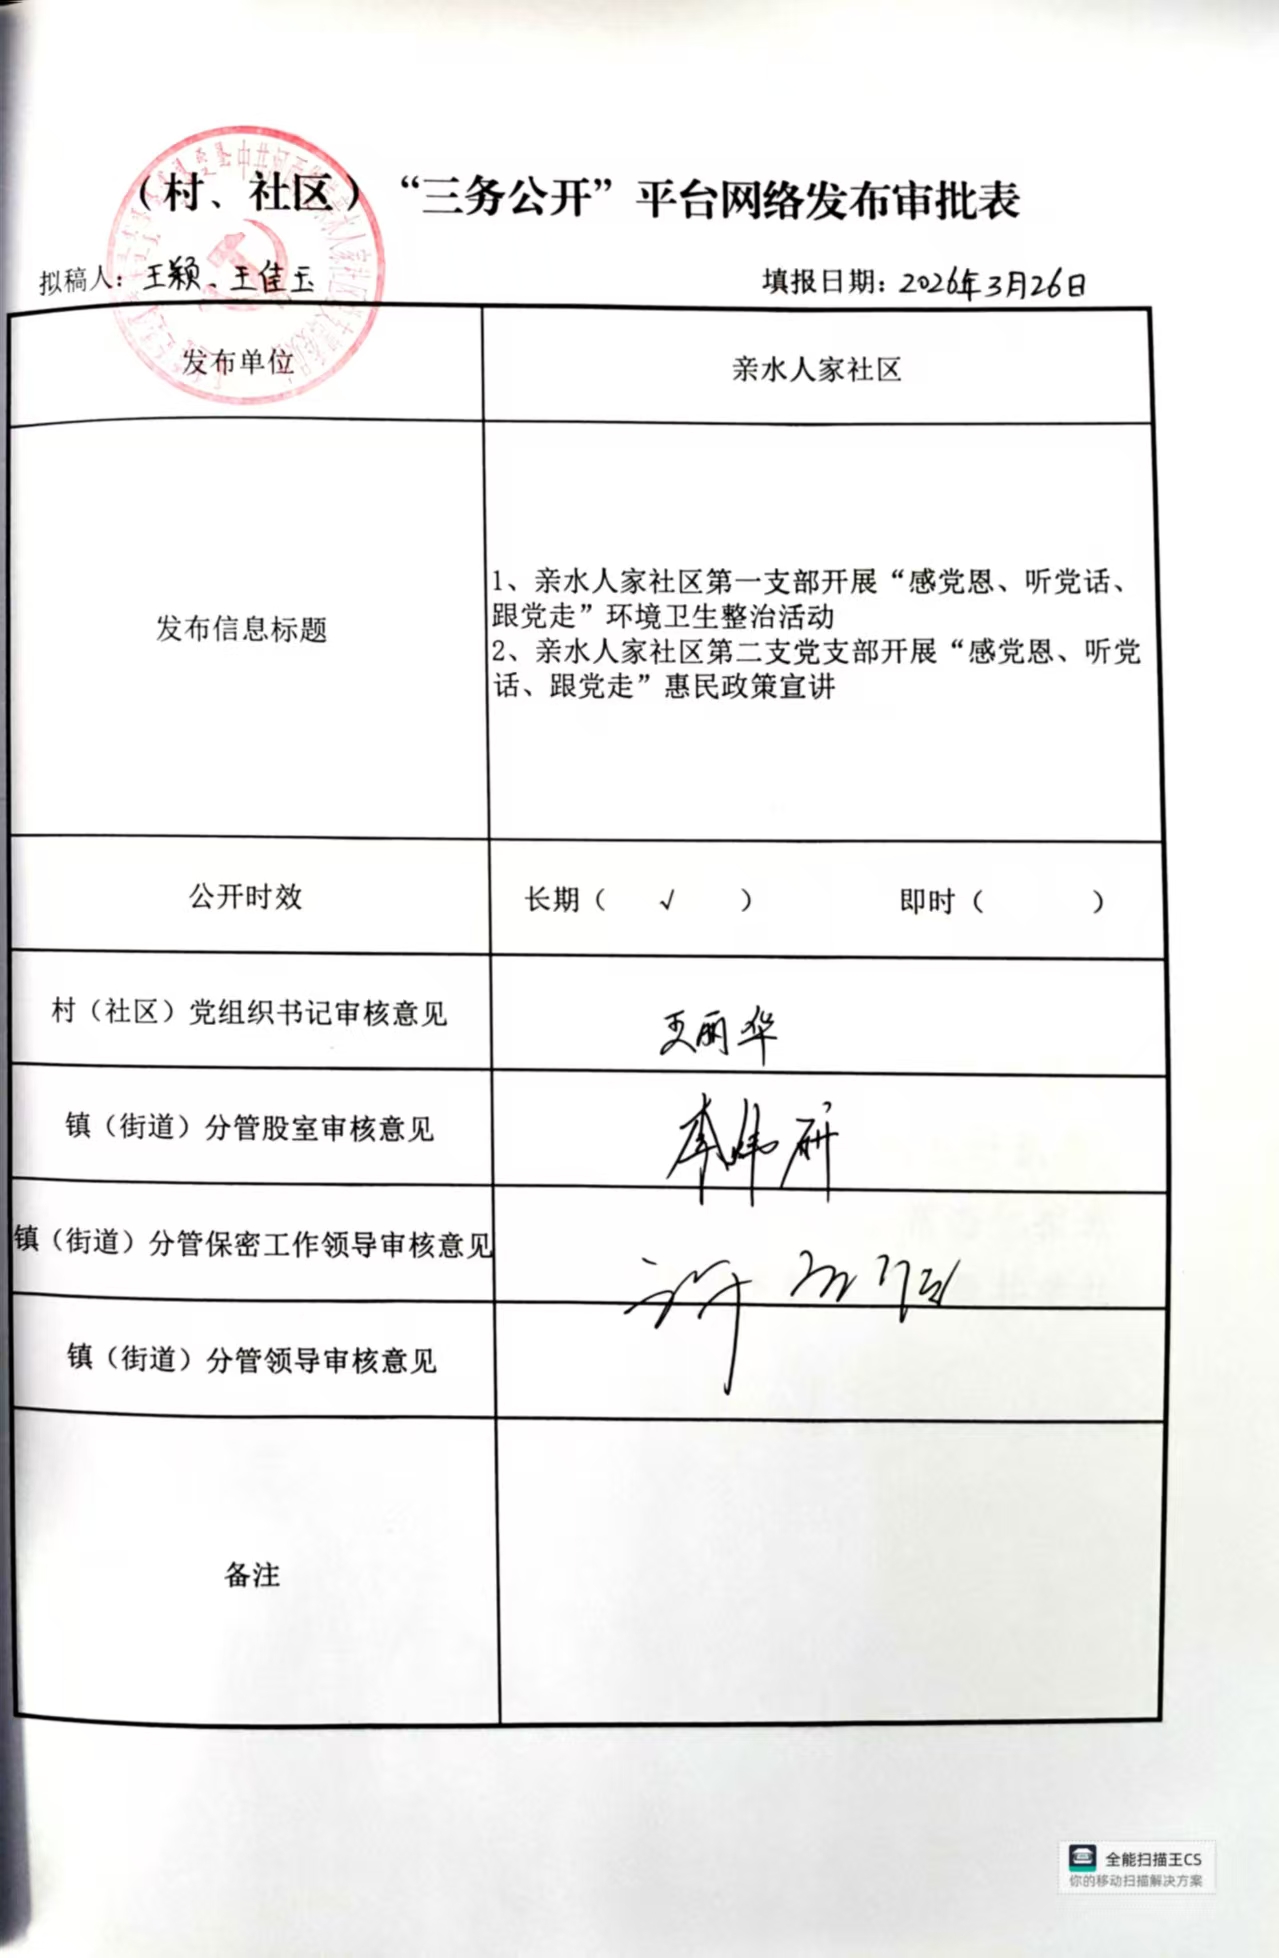 （村、社区）“三务公开”平台网络发布审批表
拟稿人：王颖、王佳玉 填报日期：2026年3月26日
发布单位 亲水人家社区
发布信息标题
1、亲水人家社区第一支部开展“感党恩、听党话、
跟党走”环境卫生整治活动
2、亲水人家社区第二支党支部开展“感党恩、听党
话、跟党走”惠民政策宣讲
公开时效 长期（ √ ） 即时（ ）
村（社区）党组织书记审核意见 王丽华
镇（街道）分管股室审核意见
镇（街道）分管保密工作领导审核意见
镇（街道）分管领导审核意见
备注
全能扫描王CS
你的移动扫描解决方案